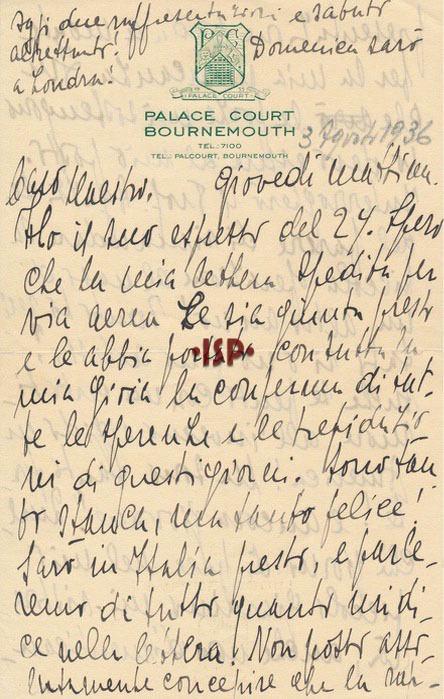 Oggi due rappresentazioni e sabato
altrettanto! Domenica sarò
a Londra.
P C
PALACE COURT
PALACE COURT
BOURNEMOUTH
TEL: 7100
TEL.: PALCOURT, BOURNEMOUTH
3 Agosto 1936
Giovedì mattina.
Caro Maestro.
Ho il suo espresso del 24. Spero
che la mia lettera spedita per
via aerea Le sia giunta presto
e le abbia con tutta la
ISP
mia gioia la conferma di tut-
te le speranze e le trepidazio-
ni di questi giorni. Sono tan-
to stanca, ma tanto felice!
Sarò in Italia presto, e parle-
remo di tutto quanto mi di-
ce nella lettera! Non posso asso-
lutamente concepire che la